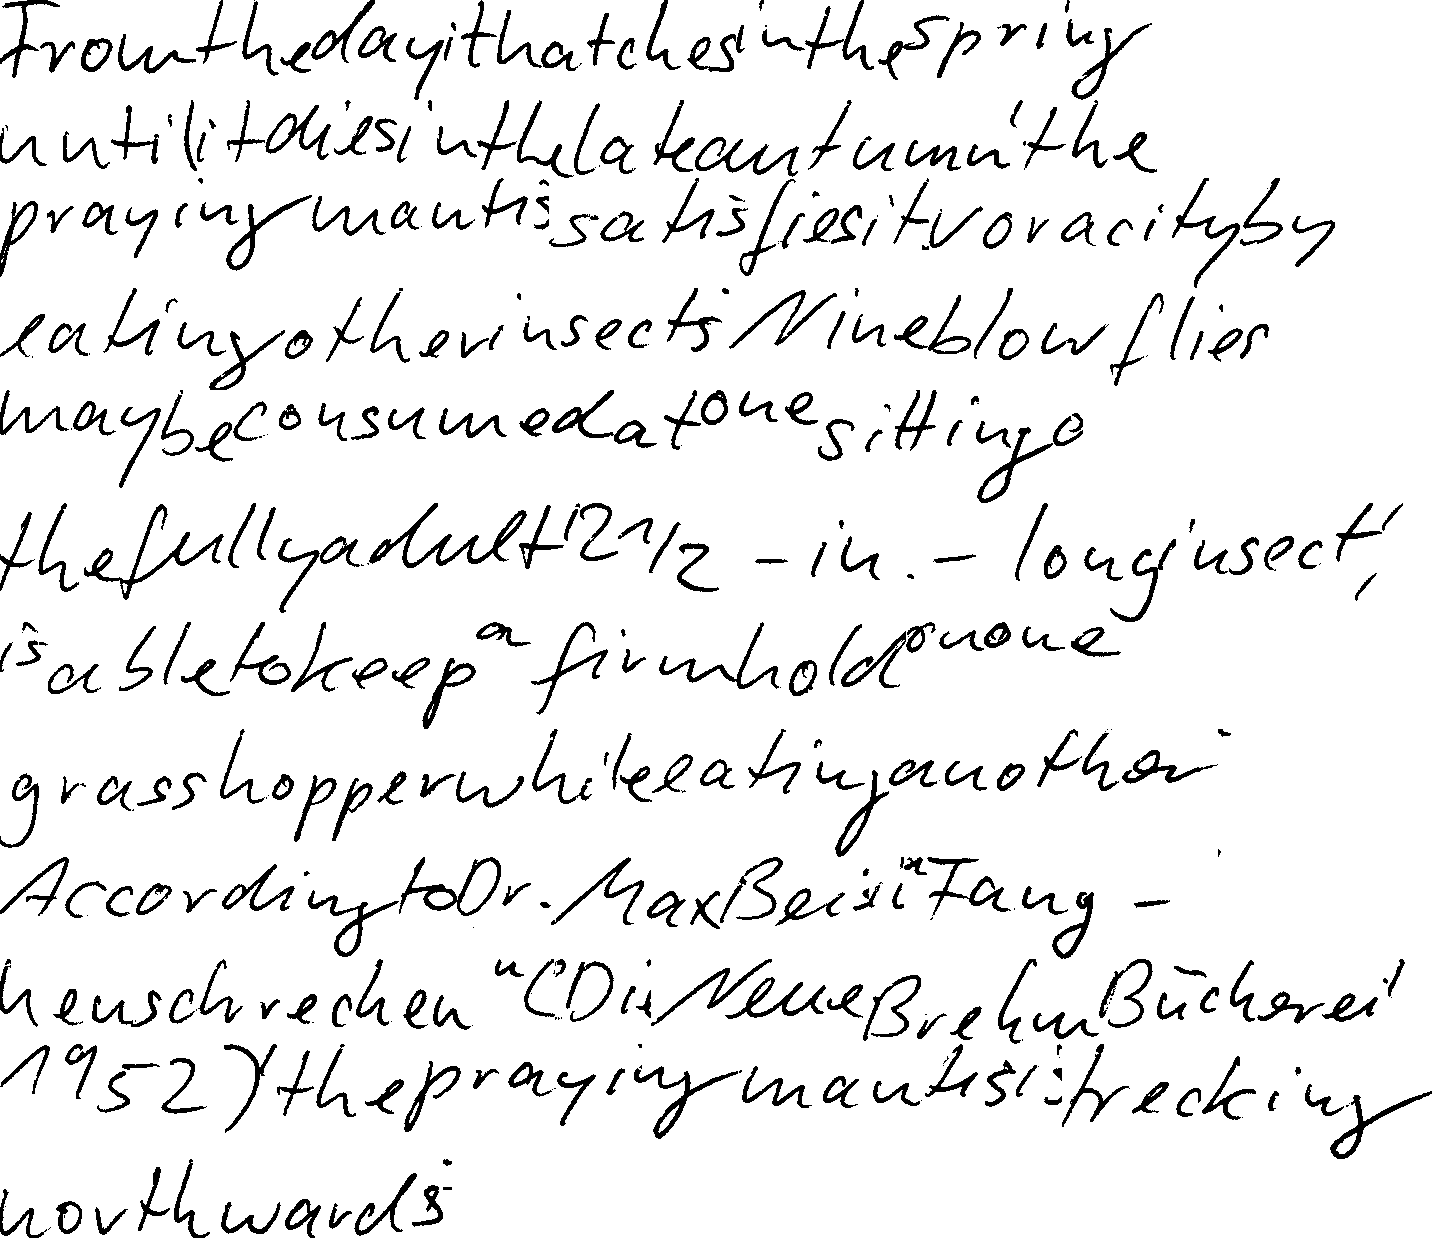 From the day it hatches in the spring
until it dies in the late autumn, the
praying mantis satisfies it voracity by
eating other insects. Nine blowflies
may be consumed at one sitting.
the fully adult, 2 1/2 - in. - long insect,
is able to keep a firm hold on one
grasshopper while eating another.
According to Dr. Max Beier in "Fang -
heuschrecken" (Die Neue Brehm Bücherei,
1952), the praying mantis is trecking
northwards.